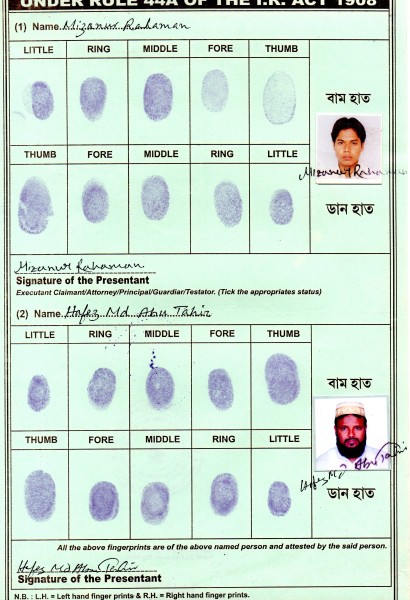 UNDER RULE 44A OF THE I.R. ACT 1908
(1) Name. Mizanur Rahaman
LITTLE RING MIDDLE FORE THUMB
বাম হাত
Mizanur Rahaman
THUMB FORE MIDDLE RING LITTLE
ডান হাত
Mizanur Rahaman
Signature of the Presentant
Executant Claimant/Attorney/Principal/Guardiar/Testator. (Tick the appropriates status)
(2) Name. Hafez Md Abu Tahir
LITTLE RING MIDDLE FORE THUMB
বাম হাত
Hafez Md Abu Tahir
THUMB FORE MIDDLE RING LITTLE
ডান হাত
All the above fingerprints are of the above named person and attested by the said person.
Hafez Md Abu Tahir
Signature of the Presentant
N.B. : L.H. = Left hand finger prints & R.H. = Right hand finger prints.